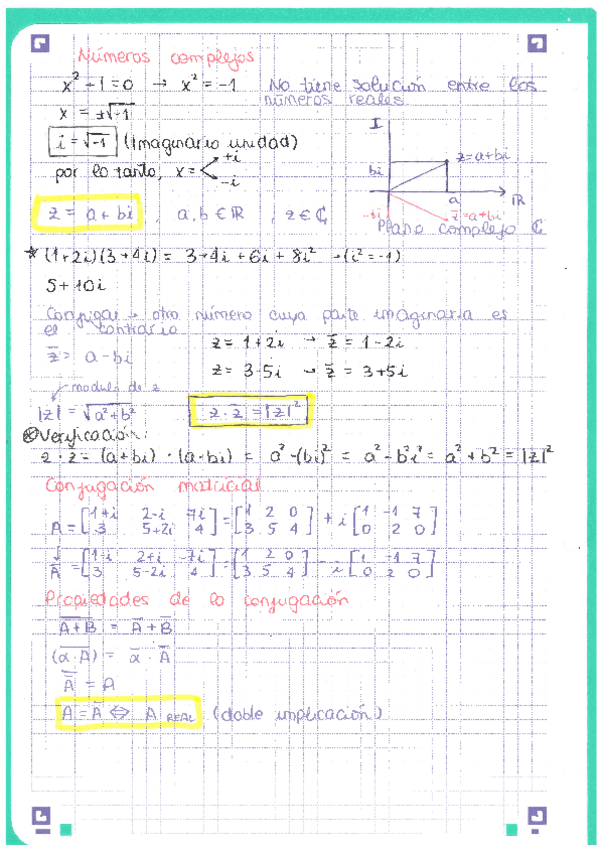 Números complejos
x² + 1 = 0 → x² = -1 No tiene solución entre los
números reales
x = ±√-1
i = √-1 (Imaginario unidad)
por lo tanto, x = +i
-i
I
z = a+bi
bi
a
R
-bi
z̄ = a+bi
Plano complejo ℂ
z = a + bi , a, b ∈ ℝ , z ∈ ℂ
* (1+2i)(3+4i) = 3+4i + 6i + 8i² → (i² = -1)
5 + 10i
Conjugar → otro número cuya parte imaginaria es
el contrario
z = 1 + 2i → z̄ = 1 - 2i
z̄ = a - bi
z = 3 - 5i → z̄ = 3 + 5i
modulo de z
|z| = √a² + b² z · z̄ = |z|²
* Verificación:
z · z̄ = (a+bi) · (a-bi) = a² - (bi)² = a² - b²i² = a² + b² = |z|²
Conjugación matricial
A = [1+i 2-i 7i; 3 5+2i 4] = [1 2 0; 3 5 4] + i [1 -1 7; 0 2 0]
Ā = [1-i 2+i -7i; 3 5-2i 4] = [1 2 0; 3 5 4] - i [1 -1 7; 0 2 0]
Propiedades de la conjugación
A̅+̅B̅ = Ā + B̄
(α · A)‾ = ᾱ · Ā
A̿ = A
A = Ā ⇔ A REAL (doble implicación)